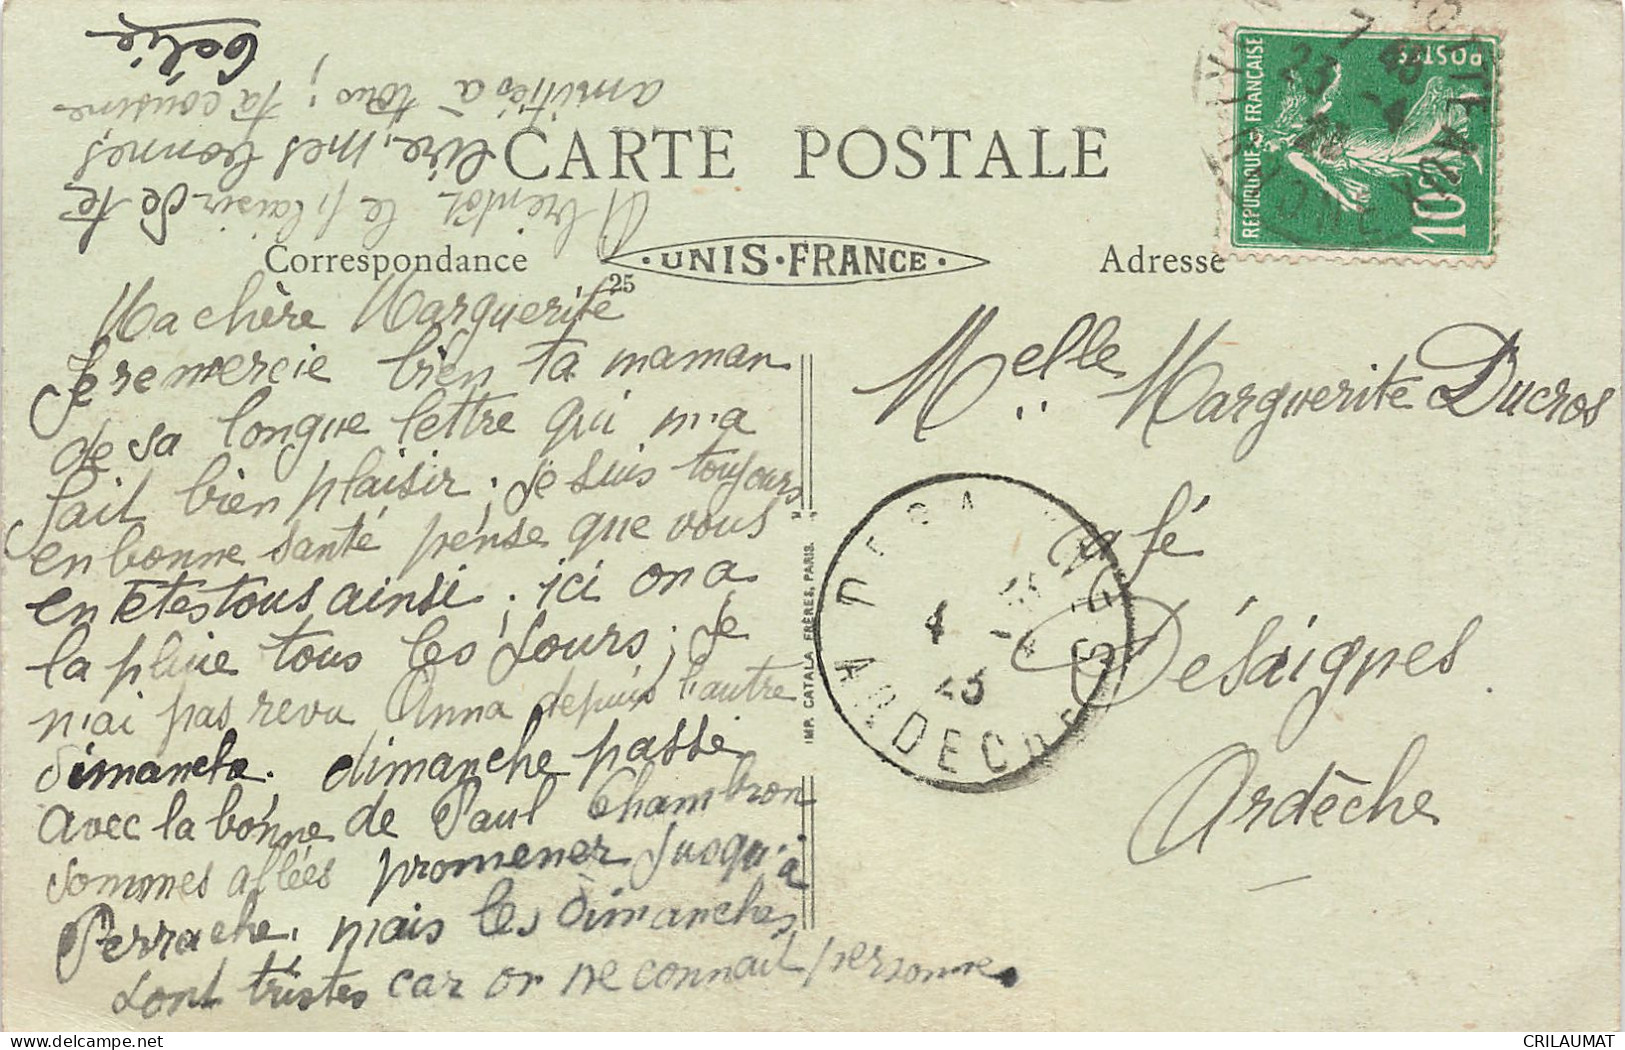 CARTE POSTALE
Correspondance
UNIS-FRANCE
25
Adresse
REPUBLIQUE FRANÇAISE
POSTES
10c
Ma chère Marguerite
Je remercie bien ta maman
de sa longue lettre qui m'a
fait bien plaisir. je suis toujours
en bonne santé pense que vous
en êtes tous ainsi. ici on a
la pluie tous les jours; je
n'ai pas revu Anna depuis l'autre
dimanche. dimanche passé
avec la bonne de Paul Chambron
sommes allées promener jusqu'à
Perrache. mais les dimanches
sont tristes car on ne connait personne.
A bientôt le plaisir de te
lire, mes bonnes
amitiés à tous; ta cousine
Célie
Melle Marguerite Ducros
Café
Désaignes
Ardèche
DESAIGNES
4 -4
23
ARDECHE
IMP. CATALA FRÈRES, PARIS.
CRILAUMAT